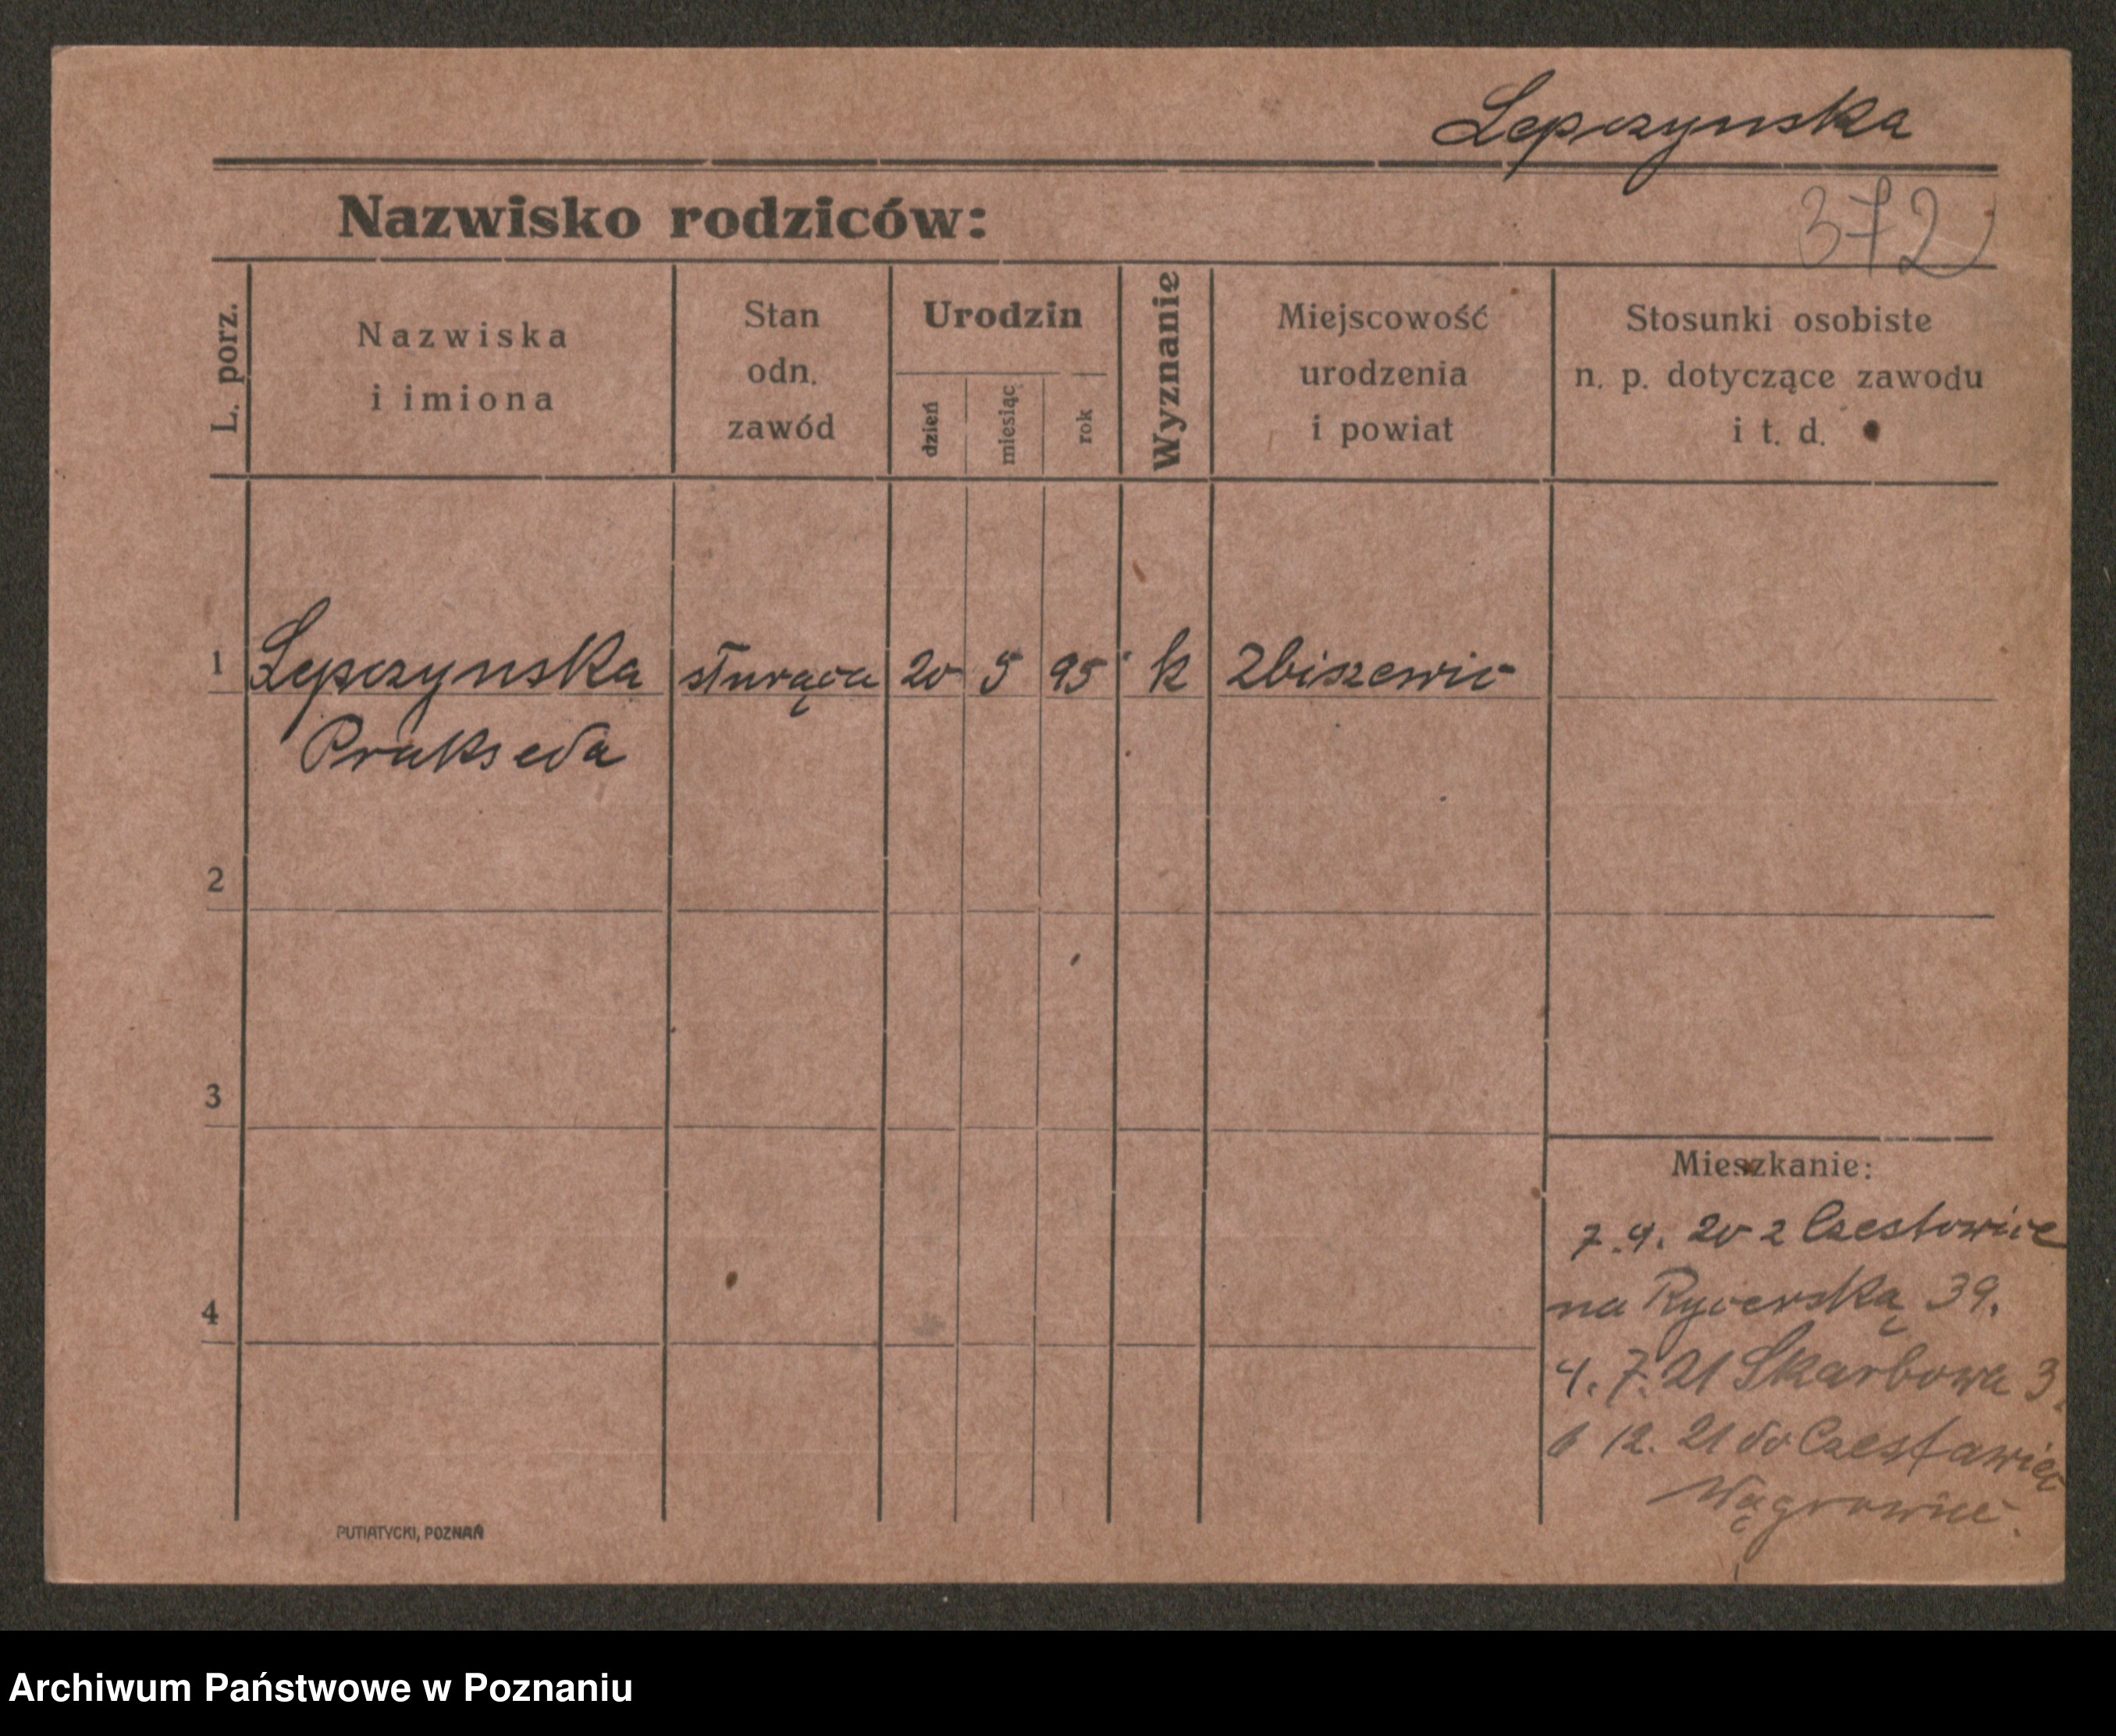 Lepczynska
Nazwisko rodziców:
372
L. porz.
Nazwiska
i imiona
Stan
odn.
zawód
Urodzin
dzień
miesiąc
rok
Wyznanie
Miejscowość
urodzenia
i powiat
Stosunki osobiste
n. p. dotyczące zawodu
i t. d.
1 Lepczynska służąca 20 5 95 k Zbiszewic
Prakseda
2
3
4
Mieszkanie:
7.9. 20 z Czesłowice
na Rycerską 39.
4.7.21 Skarbowa 3.
6 12. 21 do Czesławic
Wągrowiec.
PUTIATYCKI, POZNAŃ
Archiwum Państwowe w Poznaniu